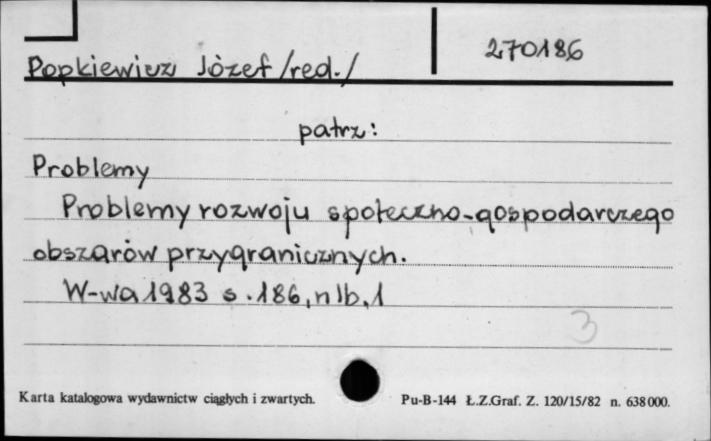 270186
Popkiewicz Józef /red./
patrz:
Problemy
Problemy rozwoju społeczno-gospodarczego
obszarów przygranicznych.
W-wa 1983 s. 186, nlb. 1
3
Karta katalogowa wydawnictw ciągłych i zwartych.
Pu-B-144 Ł.Z.Graf. Z. 120/15/82 n. 638000.